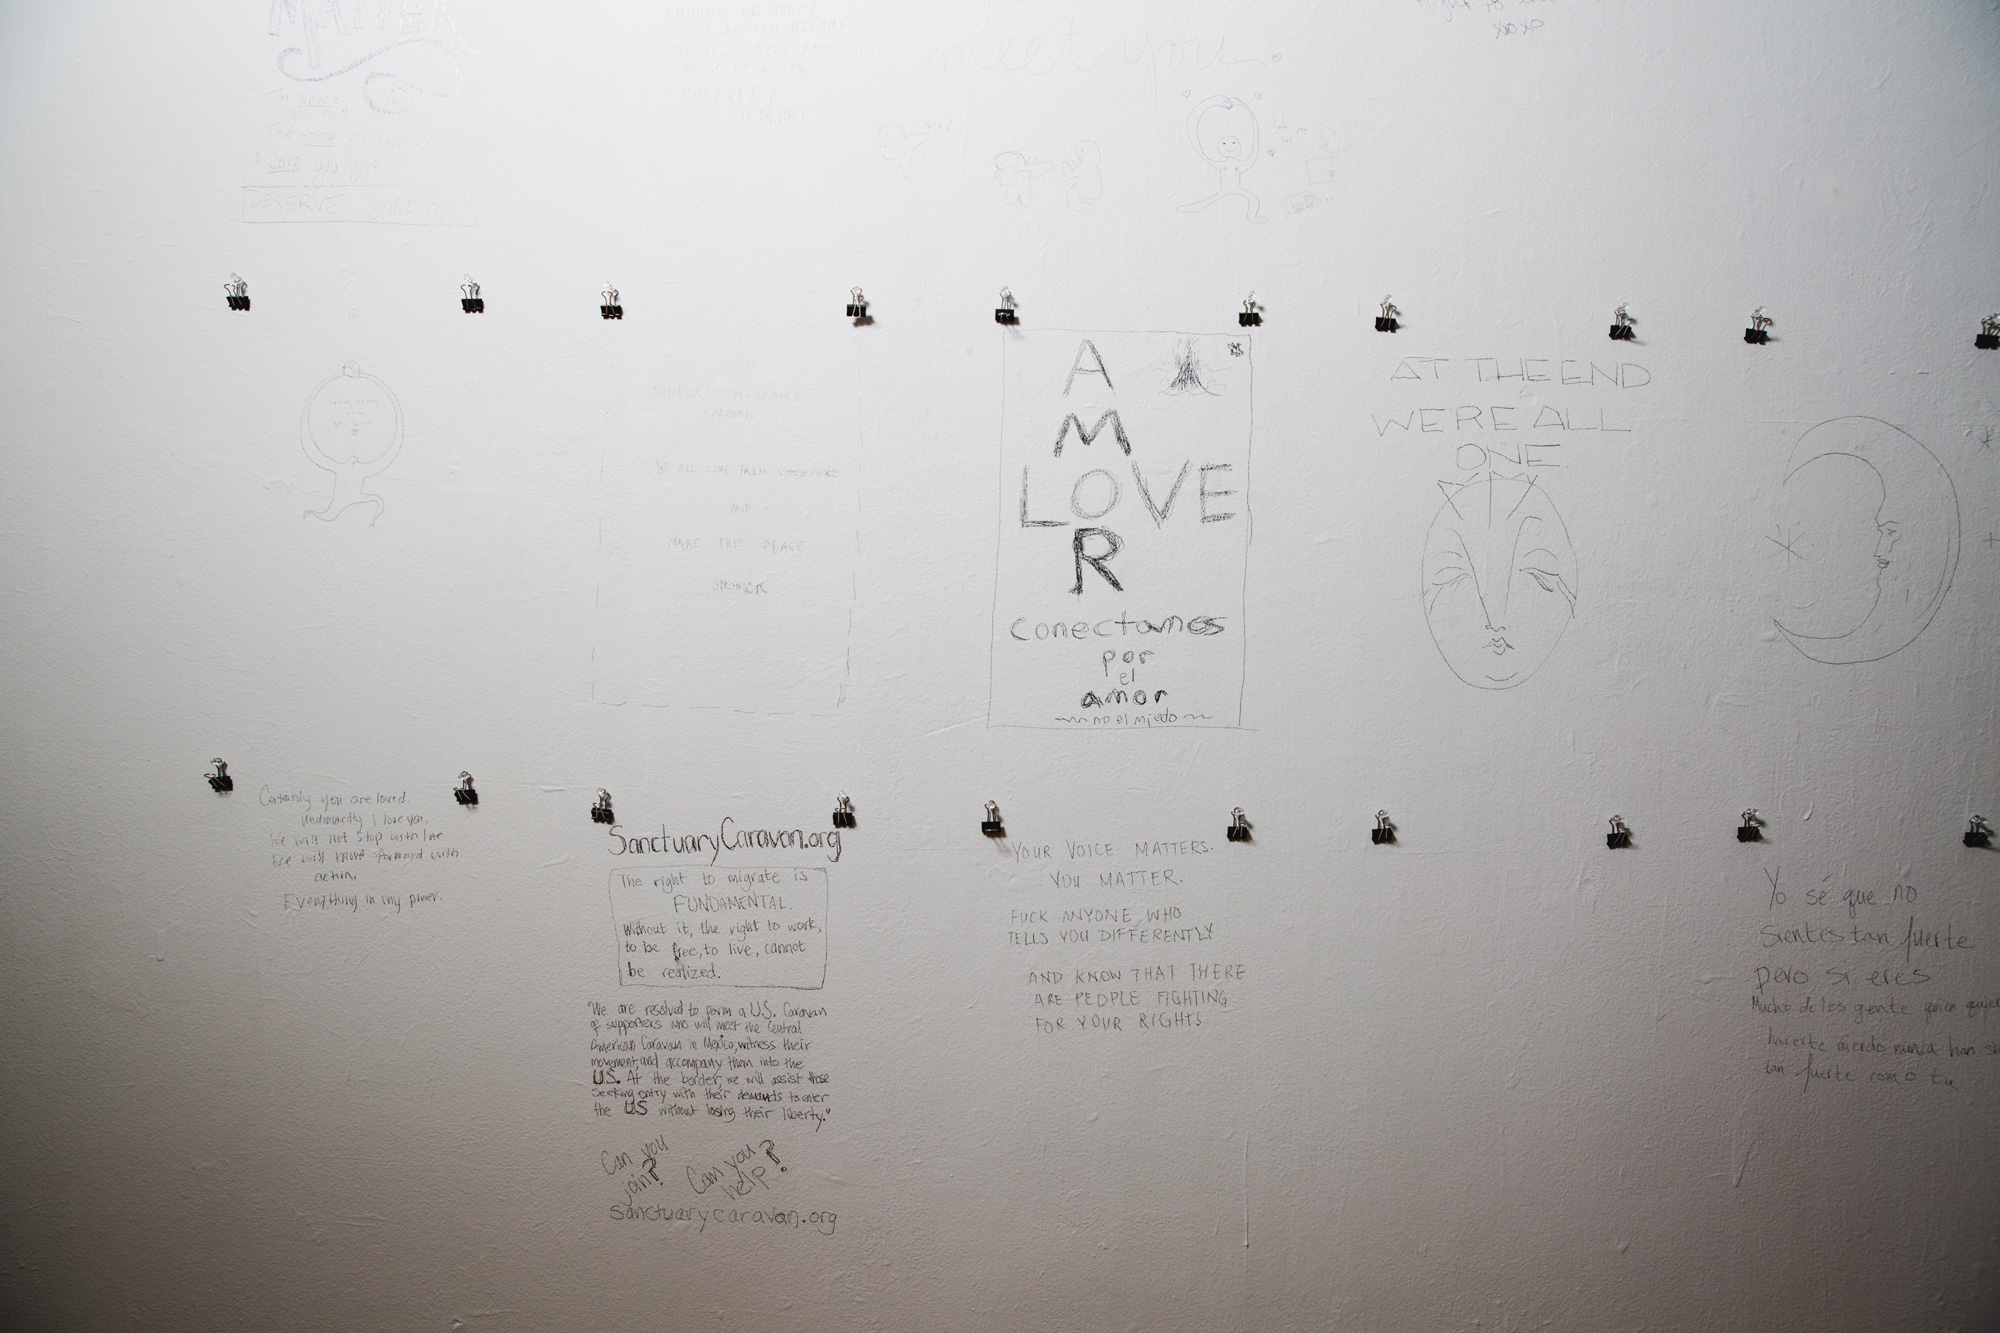 MATTER
The
The time you
care
DESERVE
SHOULD BE YOURS
AS IT SHOULD BELONG
TO ALL PEOPLE AND
FOREVER /
SIEMPRE.
meet you.
xoxo
WE ALL COME FROM SOMEWHERE
AND
MAKE THIS PLACE
STRONGER
A
M
LOVE
R
Conectarnos
por
el
amor
no el miedo
AT THE END
WE'RE ALL
ONE.
Certainly you are loved.
Undoubtedly I love you.
We will not stop with love
We will move forward with
action.
Everything in my power.
SanctuaryCaravan.org
The right to migrate is
FUNDAMENTAL.
Without it, the right to work,
to be free, to live, cannot
be realized.
"We are resolved to form a U.S. Caravan
of supporters who will meet the Central
American Caravan in Mexico, witness their
movement, and accompany them into the
U.S. At the border, we will assist those
seeking entry with their demands to enter
the US without losing their liberty."
Can you
join?
Can you
help?
sanctuarycaravan.org
YOUR VOICE MATTERS.
YOU MATTER.
FUCK ANYONE WHO
TELLS YOU DIFFERENTLY
AND KNOW THAT THERE
ARE PEOPLE FIGHTING
FOR YOUR RIGHTS
Yo sé que no
sientes tan fuerte
pero si eres
Mucho de los gente quien
hacerte mierdo nunca han
tan fuerte como tu